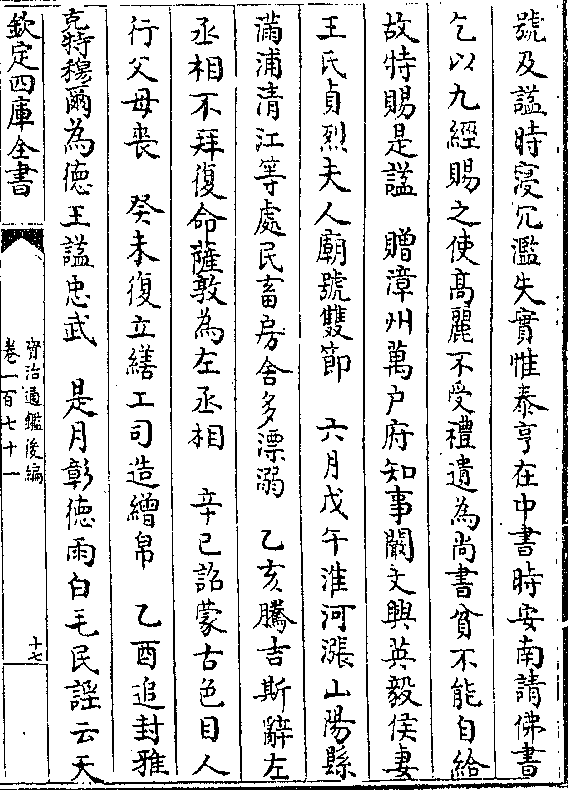 號及諡時寖冗濫失實惟泰亨在中書時安南請佛書
乞以九經賜之使高麗不受禮遺為尚書貧不能自給
故特賜是諡　贈漳州萬户府知事闞文興英毅侯妻
王氏貞烈夫人廟號雙節　六月戊午淮河漲山陽縣
滿浦清江等處民畜房舍多漂溺　乙亥騰吉斯辭左
丞相不拜復命薩敦為左丞相　辛巳詔蒙古色目人
行父母喪　癸未復立繕工司造繒帛　乙酉追封雅
克特穆爾為徳王諡忠武　是月彰徳雨白毛民謡云天
欽定四庫全書
資治通鑑後編
卷一百七十一
十七